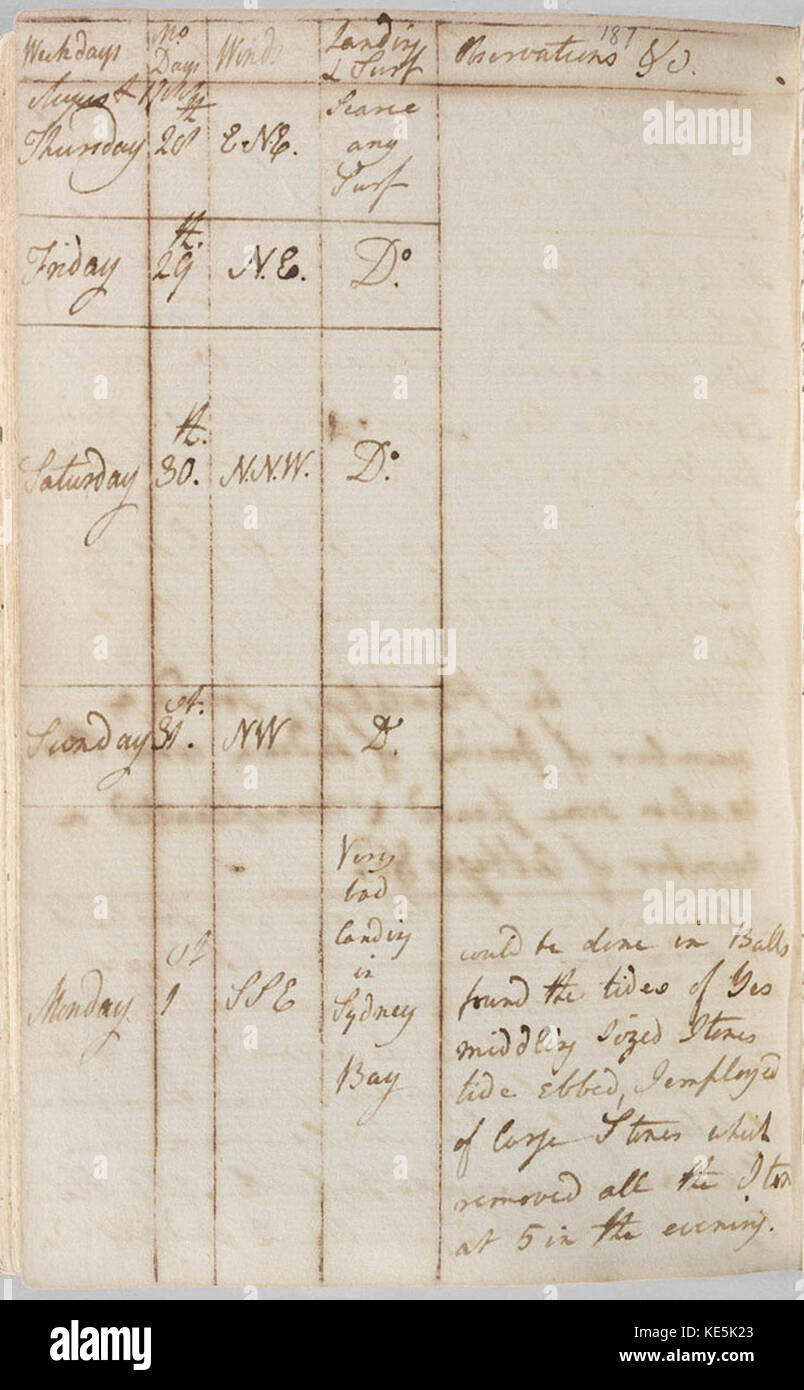 187
Weekdays Mo Days Winds Landing & Surf Observations &c.
August 1788
Thursday 28th E N E. Scarce any Surf
Friday 29th. N. E. Do.
Saturday 30th. N. N. W. Do.
Sunday 31st. N W Do.
Monday 1st S S E Very bad Landing in Sydney Bay
could be done in Balls
found the tides of Yes
middling Sized Stones
tide Ebbed, I employed
of large Stones which
removed all the Ston
at 5 in the evening.
alamy
a
alamy
a
alamy
a
alamy
alamy
www.alamy.com
KE5K23